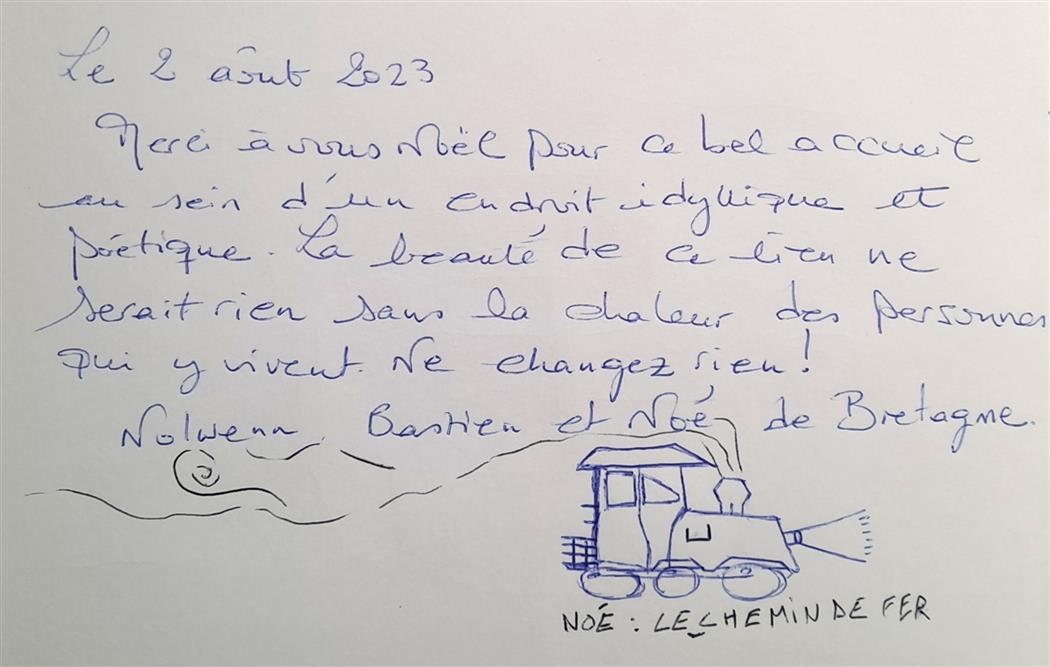 Le 2 aôut 2023
Merci à vous Noël pour ce bel accueil
au sein d'un endroit idyllique et
poétique. La beauté de ce lieu ne
serait rien sans la chaleur des personnes
qui y vivent. Ne changez rien !
Nolwenn, Bastien et Noé de Bretagne.
NOÉ : LE CHEMIN DE FER